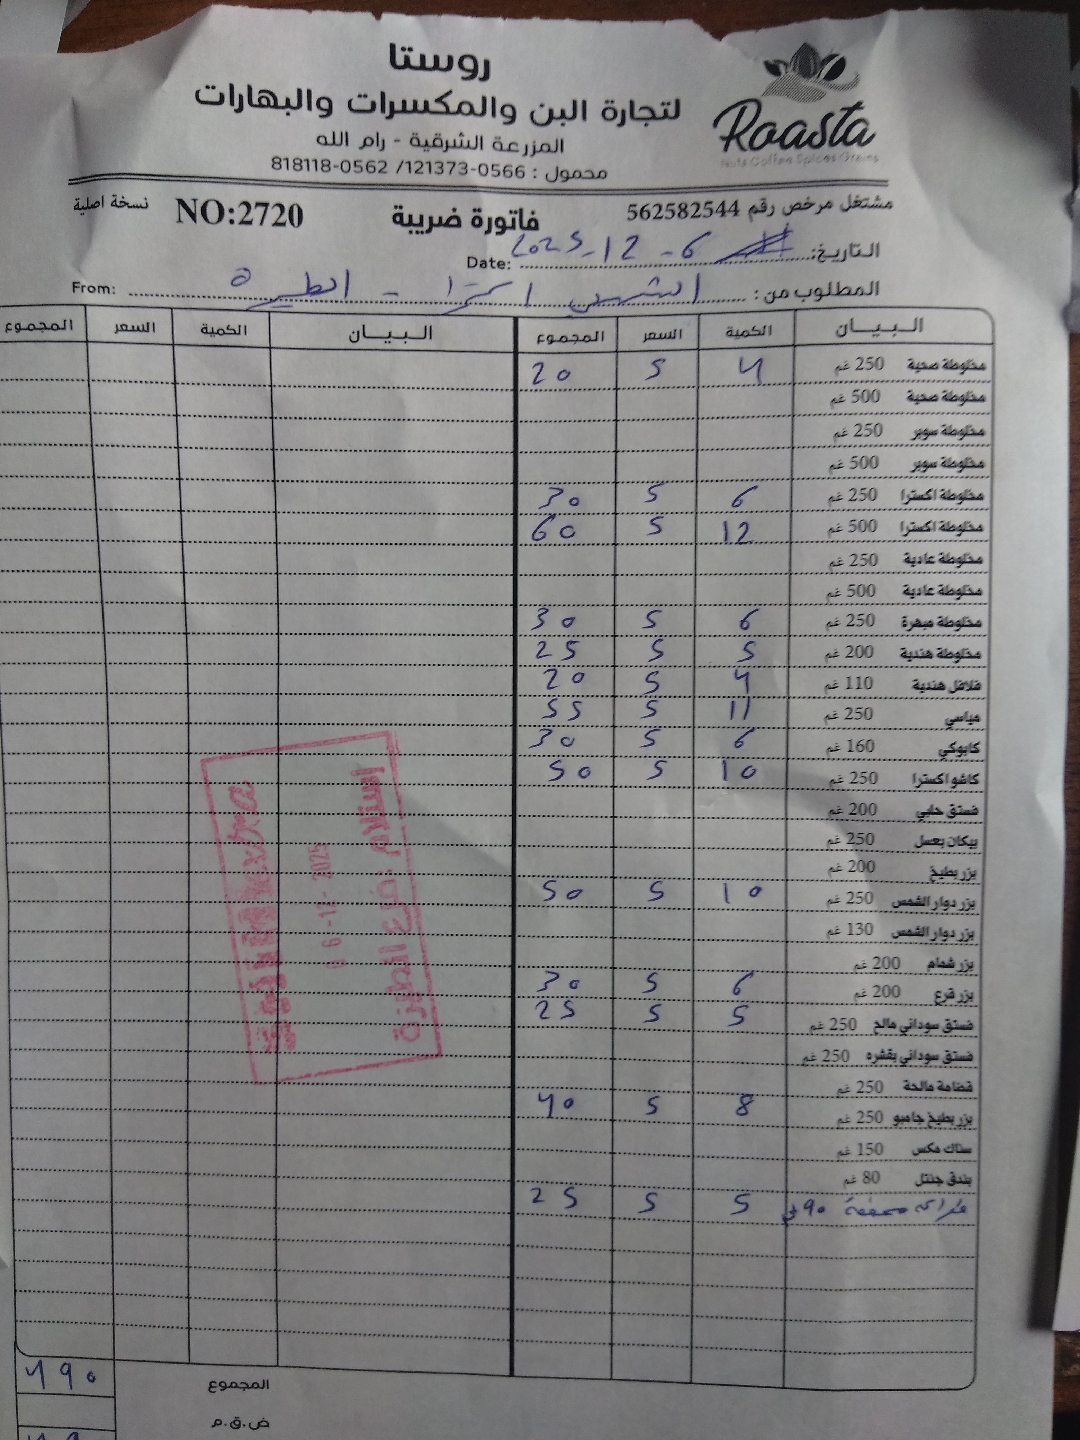 روستا
لتجارة البن والمكسرات والبهارات
المزرعة الشرقية - رام الله
محمول : 0566-121373/ 0562-818118
Roasta
Nuts Coffee Spices Grains
مشتغل مرخص رقم 562582544 فاتورة ضريبة NO:2720 نسخة اصلية
التاريخ: 2025-12-6 Date:
المطلوب من: الشيني اكسترا - الطيرة From:
البيــان الكمية السعر المجموع البيــان الكمية السعر المجموع
مخلوطة صحية 250 غم 4 5 20
مخلوطة صحية 500 غم
مخلوطة سوبر 250 غم
مخلوطة سوبر 500 غم
مخلوطة اكسترا 250 غم 6 5 30
مخلوطة اكسترا 500 غم 12 5 60
مخلوطة عادية 250 غم
مخلوطة عادية 500 غم
مخلوطة مبهرة 250 غم 6 5 30
مخلوطة هندية 200 غم 5 5 25
فلافل هندية 110 غم 4 5 20
مياسي 250 غم 11 5 55
كابوكي 160 غم 6 5 30
كاشو اكسترا 250 غم 10 5 50
فستق حلبي 200 غم
بيكان بعسل 250 غم
بزر بطيخ 200 غم
بزر دوار الشمس 250 غم 10 5 50
بزر دوار الشمس 130 غم
بزر شمام 200 غم
بزر قرع 200 غم 6 5 30
فستق سوداني مالح 250 غم 5 5 25
فستق سوداني بقشره 250 غم
قضامة مالحة 250 غم
بزر بطيخ جامبو 250 غم 8 5 40
سناك مكس 150 غم
بندق جنتل 80 غم
مجففة 90 غم 5 5 25
استلام فرع الطيرة
06-12-2025
extra
المجموع 490
ض.ق.م